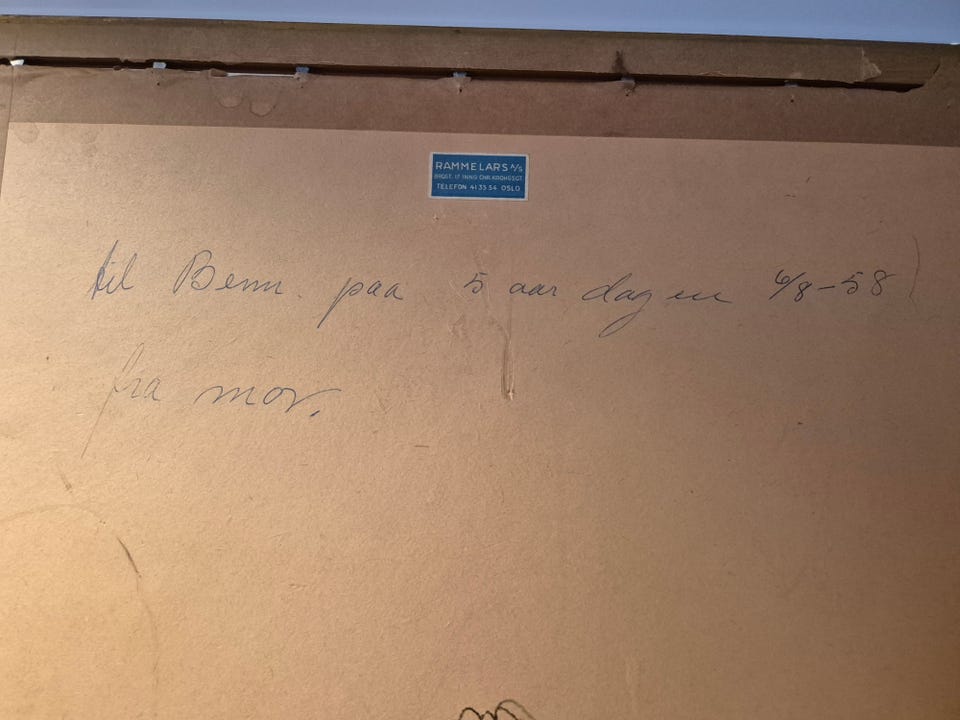 RAMME LARS A/S
BROGT. 17 INNG. CHR. KROHGSGT.
TELEFON 41 35 54 OSLO
til Benn. paa 5 aar dagen 6/8-58
fra mor.